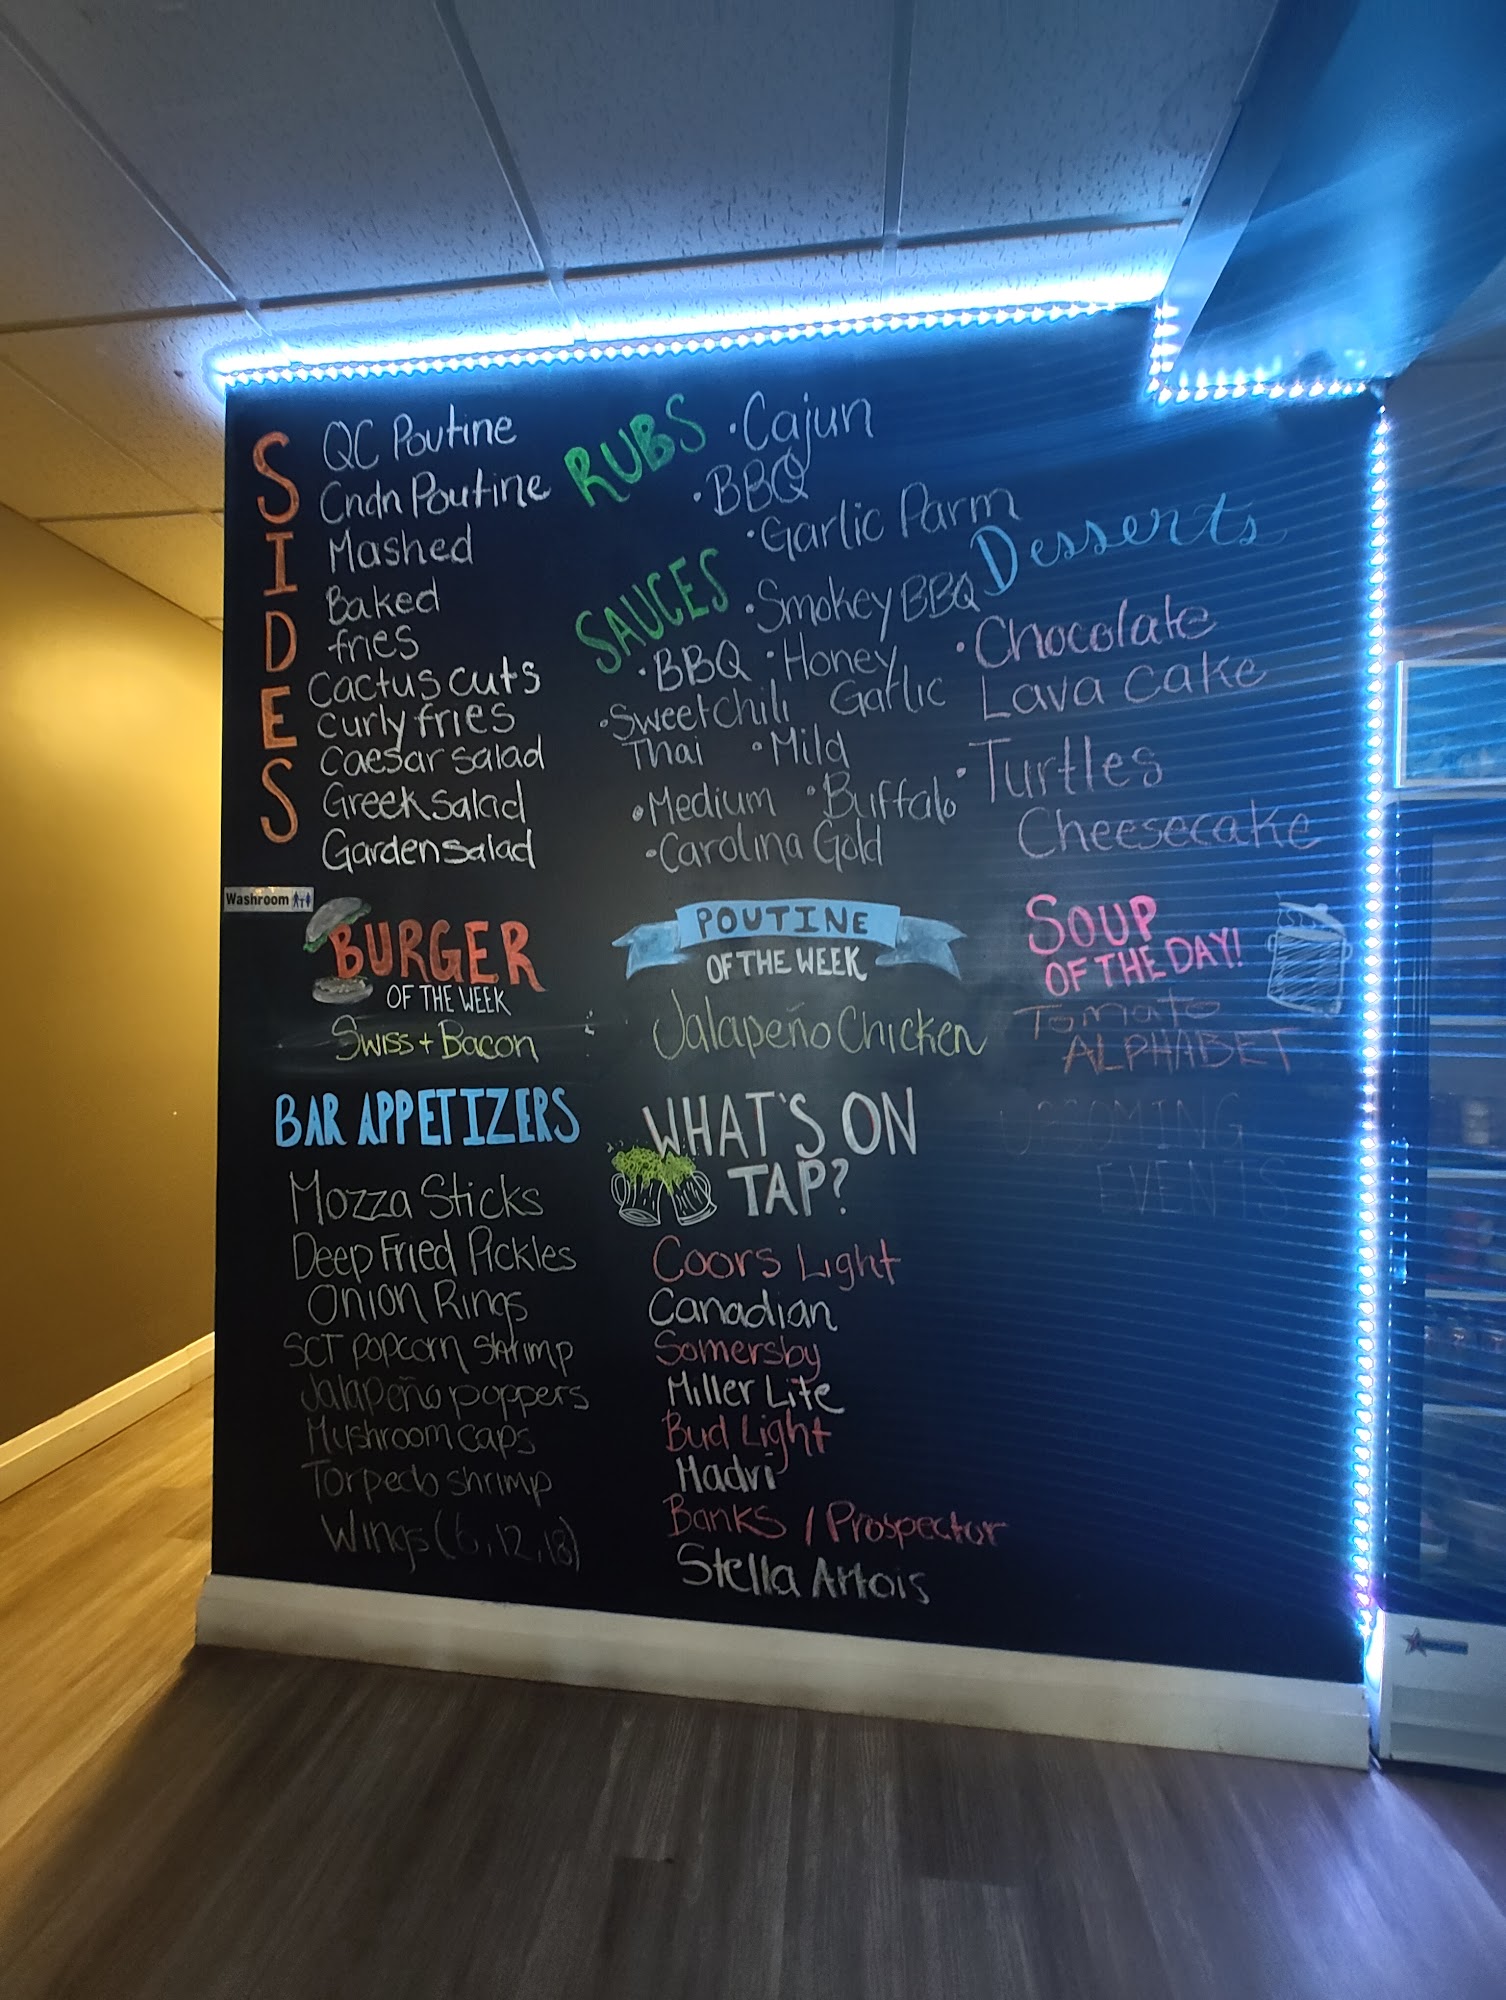 SIDES
QC Poutine
Cndn Poutine
Mashed
Baked
fries
Cactus cuts
Curly fries
Caesar salad
Greek Salad
Garden salad
RUBS
• Cajun
• BBQ
• Garlic Parm
SAUCES
• Smokey BBQ
• BBQ • Honey Garlic
• Sweet Chili Thai • Mild
• Medium • Buffalo
• Carolina Gold
Desserts
• Chocolate
Lava Cake
• Turtles
Cheesecake
Washroom
BURGER
OF THE WEEK
Swiss + Bacon
POUTINE
OF THE WEEK
Jalapeño Chicken
SOUP
OF THE DAY!
Tomato
ALPHABET
BAR APPETIZERS
Mozza Sticks
Deep Fried Pickles
Onion Rings
SCT popcorn shrimp
Jalapeño poppers
Myshroom caps
Torpedo shrimp
Wings (6, 12, 18)
WHAT'S ON
TAP?
Coors Light
Canadian
Somersby
Miller Lite
Bud Light
Madri
Banks / Prospector
Stella Artois
UPCOMING
EVENTS